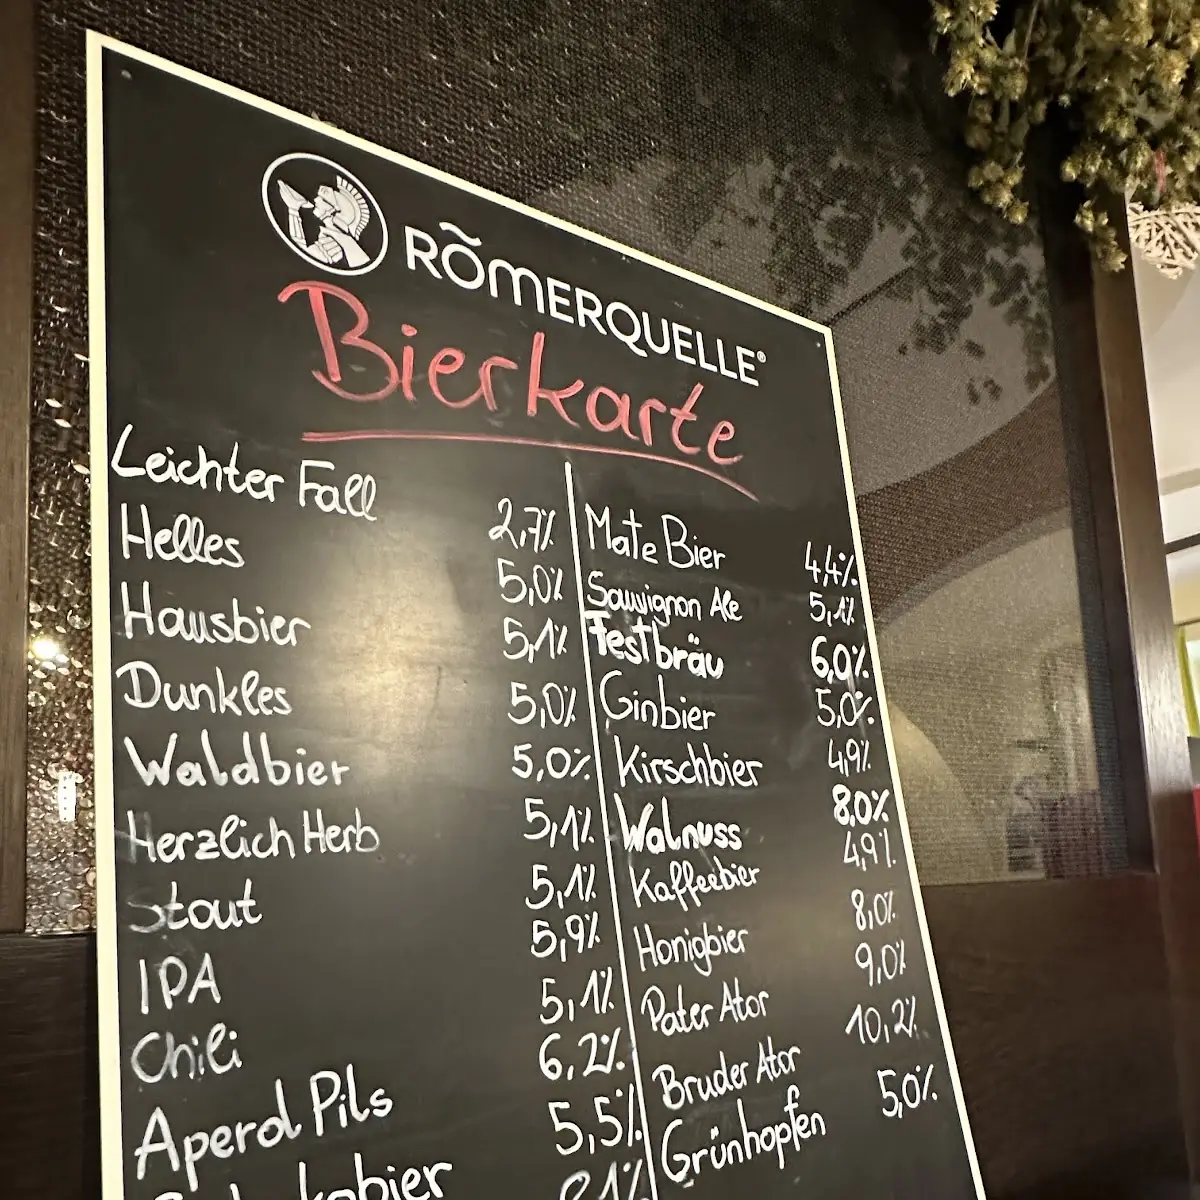 RÖMERQUELLE®
Bierkarte
Leichter Fall 2,7%
Helles 5,0%
Hausbier 5,1%
Dunkles 5,0%
Waldbier 5,0%
Herzlich Herb 5,1%
Stout 5,1%
IPA 5,9%
Chili 5,1%
Aperol Pils 6,2%
5,5%
Mate Bier 4,4%
Sauvignon Ale 5,1%
Festbräu 6,0%
Ginbier 5,0%
Kirschbier 4,9%
Walnuss 8,0%
Kaffeebier 4,9%
Honigbier 8,0%
Pater Ator 9,0%
Bruder Ator 10,2%
Grünhopfen 5,0%